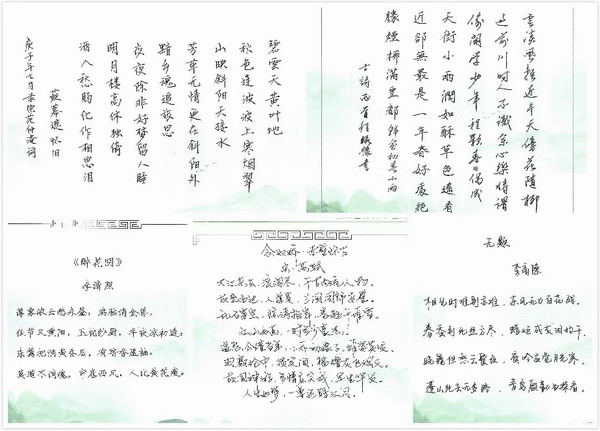 碧雲天黄叶地
秋色连波波上寒烟翠
山映斜阳天接水
芳草无情更在斜阳外
黯乡魂追旅思
夜夜除非好梦留人睡
明月楼高休独倚
酒入愁肠化作相思泪
苏幕遮怀旧
庚子年七月录宋范仲淹词
云淡风轻近午天傍花随柳
过前川时人不识余心乐将谓
偷闲学少年程颢春日偶成
天街小雨润如酥草色遥看
近却无最是一年春好处绝
胜烟柳满皇都韩愈初春小雨
古詩两首
《醉花阴》
李清照
薄雾浓云愁永昼,瑞脑消金兽。
佳节又重阳,玉枕纱厨,半夜凉初透。
东篱把酒黄昏后,有暗香盈袖。
莫道不消魂,帘卷西风,人比黄花瘦。
念奴娇·赤壁怀古
宋:苏轼
大江东去,浪淘尽,千古风流人物。
故垒西边,人道是,三国周郎赤壁。
乱石穿空,惊涛拍岸,卷起千堆雪。
江山如画,一时多少豪杰。
遥想公瑾当年,小乔初嫁了,雄姿英发。
羽扇纶巾,谈笑间,樯橹灰飞烟灭。
故国神游,多情应笑我,早生华发。
人生如梦,一尊还酹江月。
无题
李商隐
相见时难别亦难,东风无力百花残。
春蚕到死丝方尽,蜡炬成灰泪始干。
晓镜但愁云鬓改,夜吟应觉月光寒。
蓬山此去无多路,青鸟殷勤为探看。